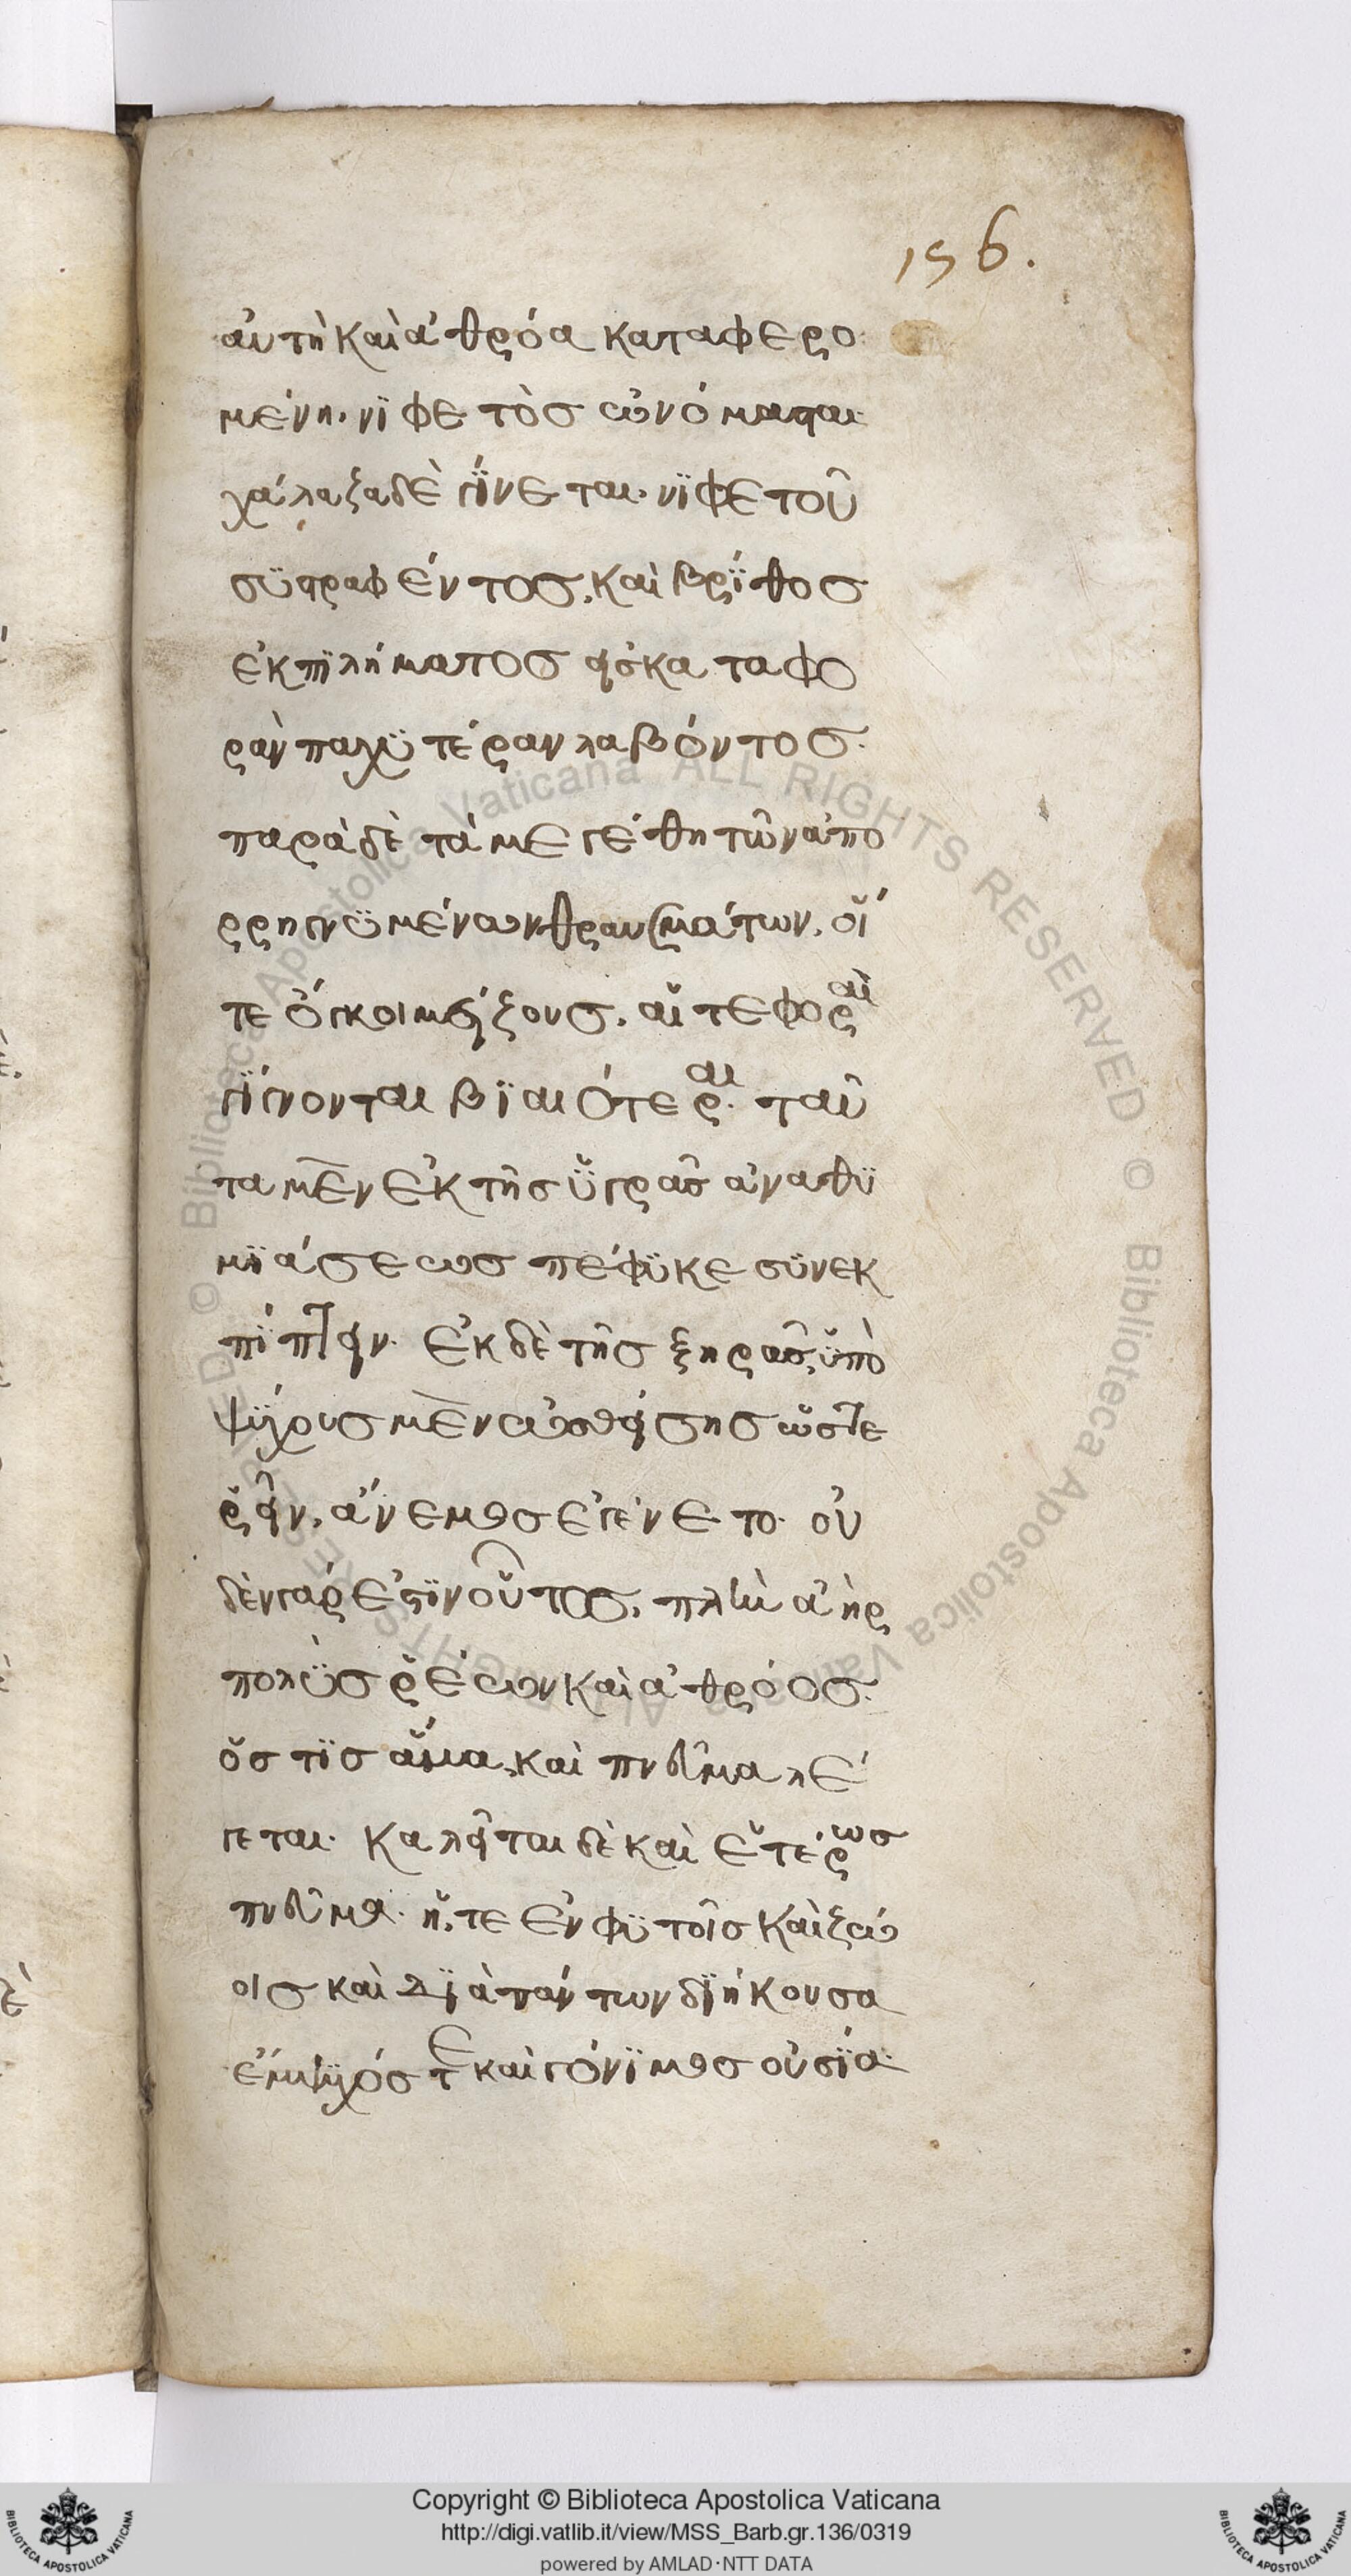 156.
αὐτὴ καὶ ἀθρόα καταφερο
μένη. νϊφετὸσ ὠνόμασται
χάλαζα δὲ γΐνεται. νϊφετοῦ
συστραφέντοσ, καὶ βρΐθοσ
ἐκ πϊλήματοσ εἰσ κατα φο
ρὰν παχυτέραν λαβόντοσ.
παρὰ δὲ τὰ μεγέθη τῶν ἀπο
ρρηγνϋμένων θραυσμάτων, οἵ
τε ὄγκοι μείζουσ, αἵ τε φοραὶ
γΐγνονται βϊαιότεραι. ταῦ
τα μὲν ἐκ τῆσ ὑγρᾶσ ἀναθϋ
μϊάσεωσ πέφϋκε σϋνεκ
πΐπτειν. ἐκ δὲ τῆσ ξηρᾶσ, ὑπὸ
ψϋχρουσ μὲν ὠσθείσησ ὥστε
ῥεῖν, ἄνεμοσ ἐγένετο. οὐ
δὲν γάρ ἐστϊν οὗτοσ, πλὴν ἀὴρ
πολὺσ ῥέων καὶ ἀθρόοσ.
ὅστϊσ ἅμα, καὶ πνεῦμα λέ
γεται. καλεῖται δὲ καὶ ἑτέρωσ
πνεῦμα. ἥ, τε ἐν φϋτοῖσ καὶ ζώ
οισ καὶ δϊὰ πάντων δϊήκουσα
ἔμψϋχόσ τε καὶ γόνϊμοσ οὐσΐα.
Copyright © Biblioteca Apostolica Vaticana
http://digi.vatlib.it/view/MSS_Barb.gr.136/0319
powered by AMLAD·NTT DATA